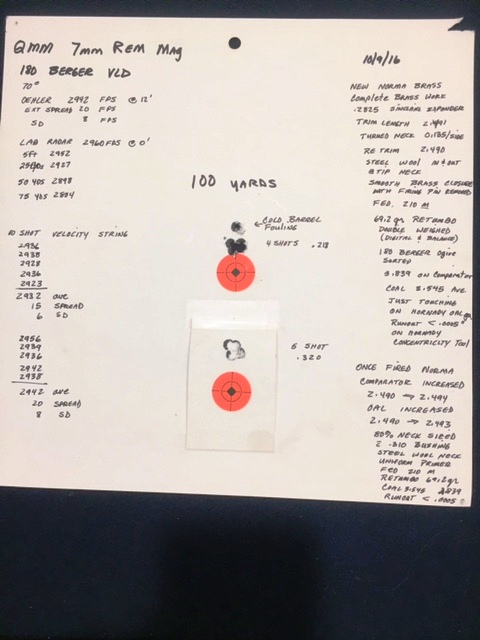 QMM 7mm Rem Mag
180 BERGER VLD
70°
OEHLER 2942 FPS @ 12'
EXT SPREAD 20 FPS
SD 8 FPS
LAB RADAR 2960 FPS @ 0'
5ft 2952
25yds 2927
50 YDS 2898
75 YDS 2864
10 SHOT VELOCITY STRING
2936
2938
2928
2936
2923
2932 AVE
15 SPREAD
6 SD
2956
2939
2936
2942
2938
2942 AVE
20 SPREAD
8 SD
100 YARDS
← COLD BARREL
FOULING
4 SHOTS .213
5 SHOT
.320
10/9/16
NEW NORMA BRASS
COMPLETE BRASS WORK
.2825 SINCLAIR EXPANDER
TRIM LENGTH 2.491
TURNED NECK 0.135/SIDE
RE TRIM 2.490
STEEL WOOL IN & OUT
& TIP NECK
SMOOTH BRASS CLOSURE
WITH FIRING PIN REMOVED
FED. 210 M
69.2 gr RETUMBO
DOUBLE WEIGHED
(DIGITAL & BALANCE)
180 BERGER Ogive
SORTED
2.839 ON COMPARATOR
COAL 3.545 AVE
JUST TOUCHING
ON HORNADY OAL ga
RUNOUT < .0005"
ON HORNADY
CONCENTRICITY TOOL
ONCE FIRED NORMA
COMPARATOR INCREASED
2.490 → 2.494
OAL INCREASED
2.490 → 2.493
80% NECK SIZED
2 .310 BUSHING
STEEL WOOL NECK
UNIFORM PRIMER
FED 210 M
RETUMBO 69.2 gr
COAL 3.545 2.839
RUNOUT < .0005"